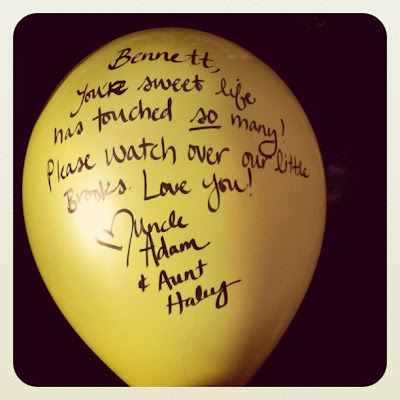 Bennett,
Your sweet life
has touched so many!
Please watch over our little
Brooks. Love you!
♡ Uncle
Adam
& Aunt
Haley